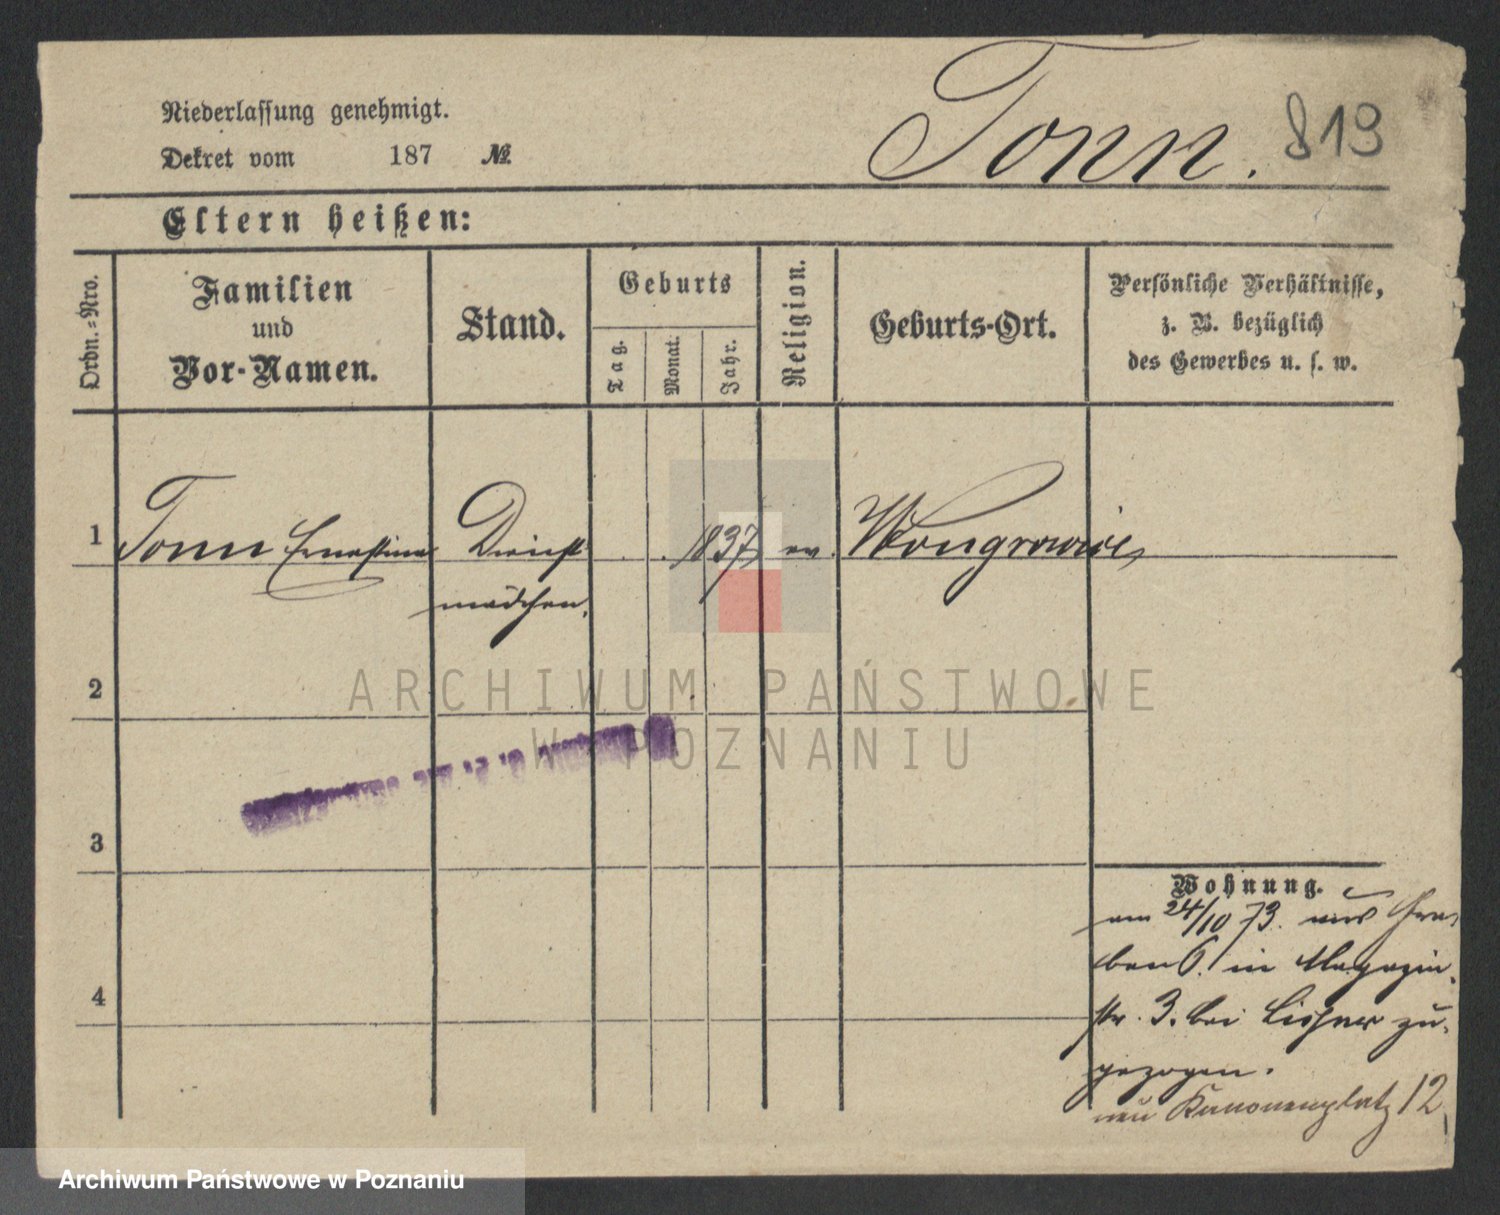 Niederlassung genehmigt.
Dekret vom 187 №
Tonn. 819
Eltern heißen:
Ordn.-Nro.
Familien
und
Vor-Namen.
Stand.
Geburts
Tag.
Monat.
Jahr.
Religion.
Geburts-Ort.
Persönliche Verhältnisse,
z. B. bezüglich
des Gewerbes u. s. w.
1 Tonn Ernestine Dienst . . 1837 ev. Wongrowiec
mädchen.
2
ARCHIWUM PAŃSTWOWE
W POZNANIU
3
Wohnung.
am 24/10 73. aus Gra
ben 6. in Magazin
4
str. 3. bei zu
gezogen.
neu Kanonenplatz 12
Archiwum Państwowe w Poznaniu